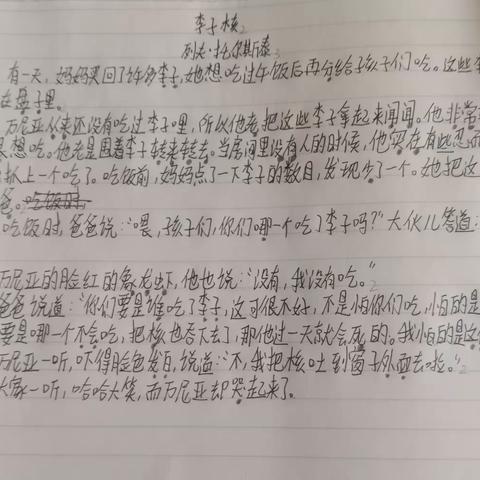 李子核
列夫·托尔斯泰
有一天，妈妈买回了许多李子，她想吃过午饭后再分给孩子们吃。这些李
在盘子里。
万尼亚从来还没有吃过李子哩，所以他老把这些李子拿起来闻闻。他非常
果想吃。他老是围着李子转来转去。当房间里没有人的时候，他实在有些忍
抓上一个吃了。吃饭前，妈妈点了一下李子的数目，发现少了一个。她把这
爸。吃饭时，
吃饭时，爸爸说："喂，孩子们，你们哪一个吃了李子吗？"大伙儿答道：
万尼亚的脸红的象龙虾，他也说："没有，我没有吃。"
爸爸说道："你们要是谁吃了李子，这可很不好，不是怕你们吃，怕的是
要是哪一个不会吃，把核也吞下去了，那他过一天就会死的。我怕的是这
万尼亚一听，吓得脸色发白，说道："不，我把核吐到窗子外面去啦。"
大家一听，哈哈大笑，而万尼亚却哭起来了。